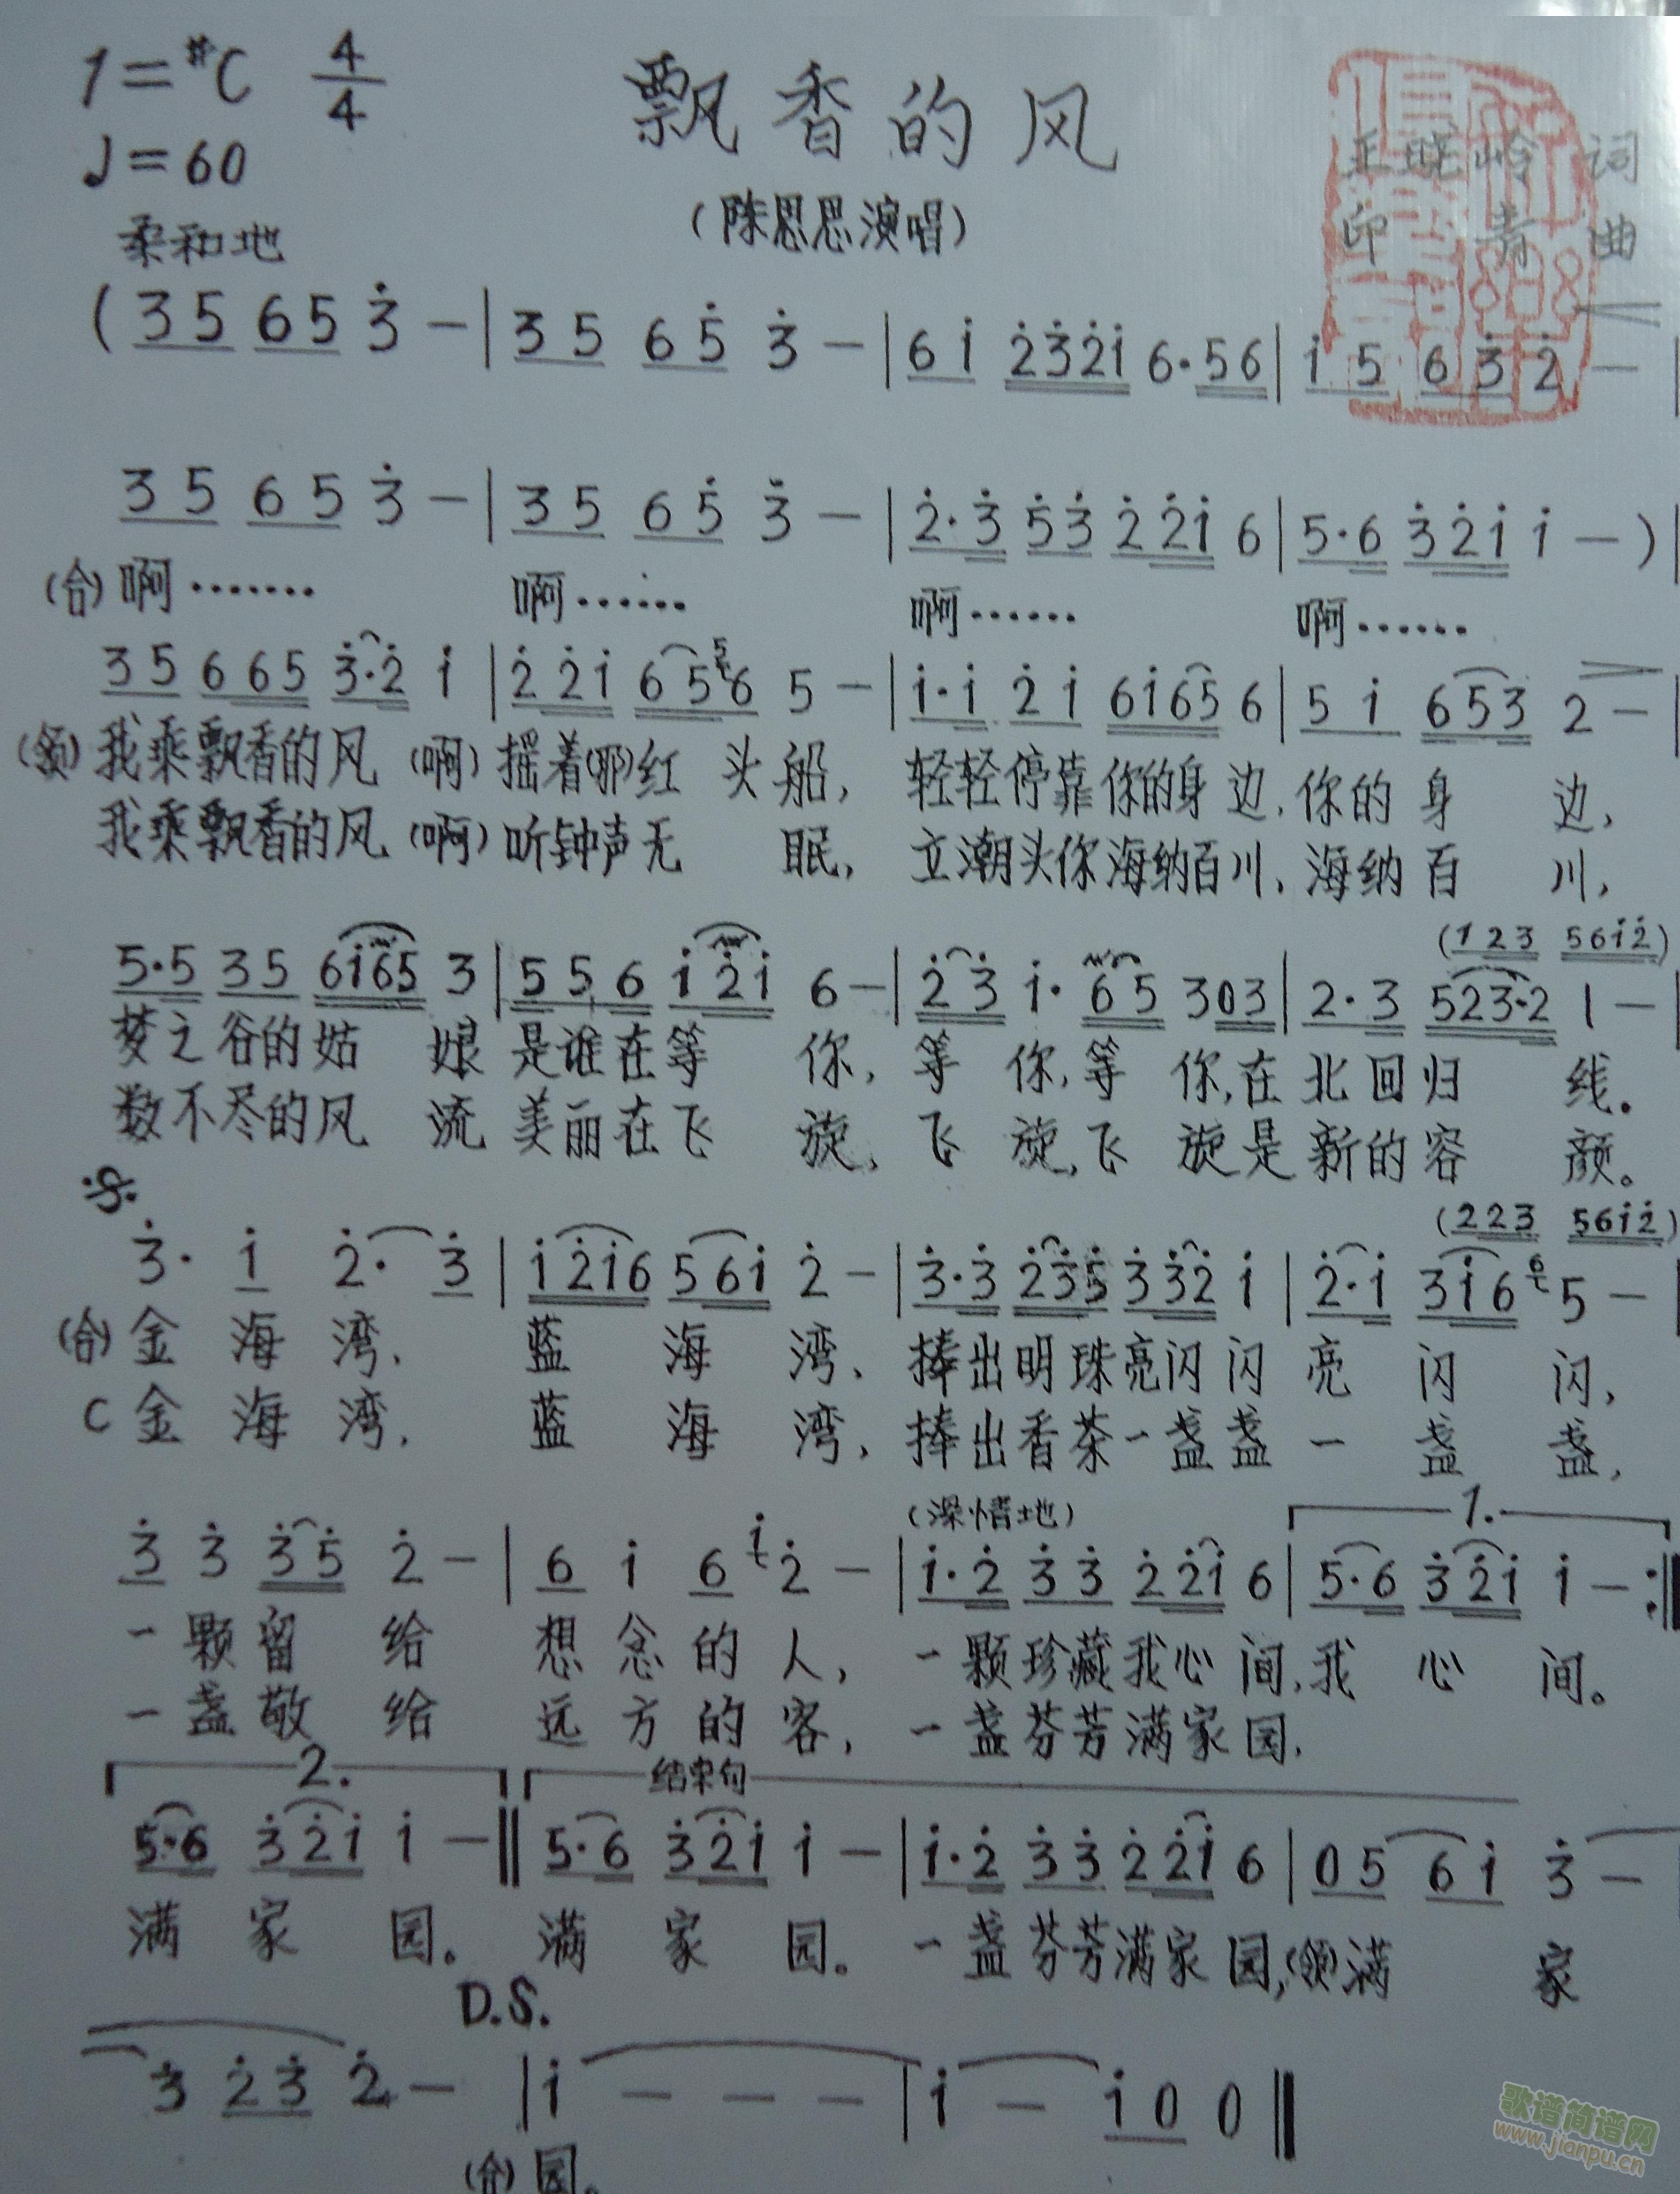 1=#C 4/4 飘香的风
♩=60 王晓岭 词
柔和地 (陈思思演唱) 印青 曲
(3 5 6 5 3̇ - | 3 5 6 5̇ 3̇ - | 6 i 2̇3̇2̇i 6·56 | i 5 6 3̇ 2̇ - |
3 5 6 5 3̇ - | 3 5 6 5̇ 3̇ - | 2̇·3̇ 5̇3̇ 2̇ 2̇i 6 | 5·6 3̇2̇i i - ) |
(合) 啊······· 啊······ 啊······ 啊······
3 5 6 65 3̇·2̇ i | 2̇ 2̇i 6 5 5 6 5 - | i·i 2̇ i 6i65 6 | 5 i 6 53 2 - |
(领) 我乘飘香的风 (啊) 摇着(那)红 头 船, 轻轻停靠你的身边,你的身 边,
我乘飘香的风 (啊) 听钟声无 眠, 立潮头你海纳百川,海纳百 川,
(1 23 56i2̇)
5·5 35 6i65 3 | 5 5 6 i 2̇i 6 - | 2̇ 3̇ i· 65 303 | 2·3 523·2 1 -
梦之谷的姑 娘 是谁在等 你, 等 你,等 你,在北回归 线。
数不尽的风 流 美丽在飞 旋, 飞 旋,飞 旋是新的容 颜。
𝄋 (2 23 56i2̇)
3̇· i 2̇· 3̇ | i2̇i6 5 6i 2̇ - | 3̇·3̇ 2̇3̇5̇ 3̇ 3̇2̇ i | 2̇·i 3i6 6 5 -
(合) 金 海 湾, 蓝 海 湾, 捧出明珠亮闪闪 亮 闪 闪,
C 金 海 湾, 蓝 海 湾, 捧出香茶一盏盏 一 盏 盏,
(深情地) 1.
3̇ 3̇ 3̇5̇ 2̇ - | 6 i 6 i 2̇ - | i·2̇ 3̇ 3̇ 2̇ 2̇i 6 | 5·6 3̇2̇i i - :‖
一 颗 留 给 想 念 的 人, 一颗珍藏我心间,我 心 间。
一 盏 敬 给 远 方 的 客, 一盏芬芳满家园,
2. 结束句
5·6 3̇2̇i i - ‖ 5·6 3̇2̇i i - | i·2̇ 3̇ 3̇ 2̇ 2̇i 6 | 0 5 6 i 3̇ -
满 家 园。 满 家 园。 一盏芬芳满家园,(领)满 家
D.S.
3̇ 2̇ 3̇ 2̇ - | i - - - | i - i 0 0 ‖
(合) 园。
歌谱简谱网
www.jianpu.cn